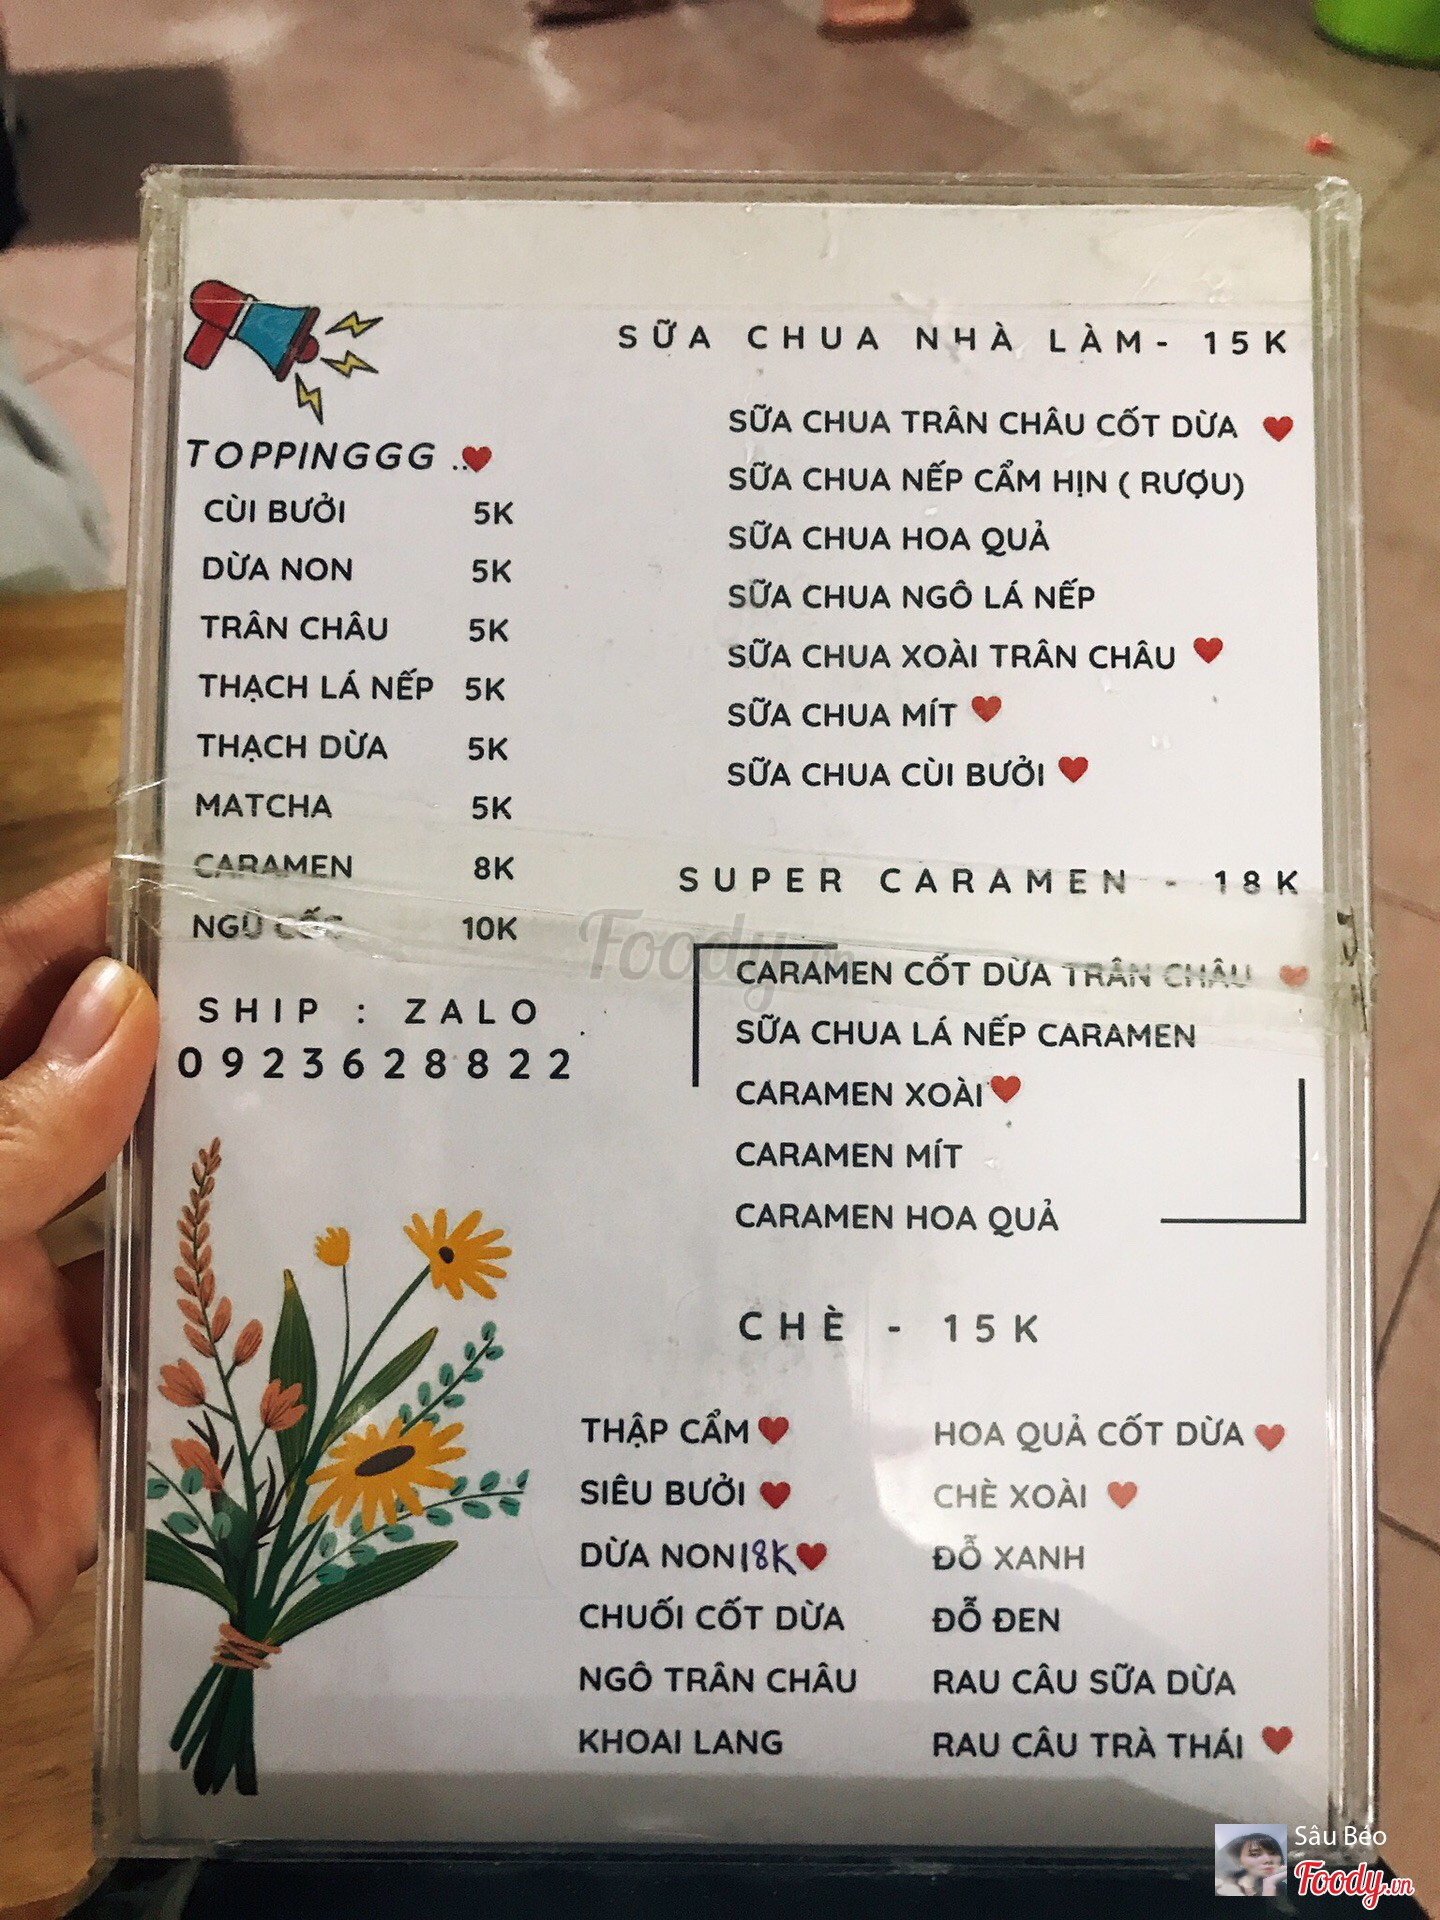 TOPPINGGG ..
CÙI BƯỞI 5K
DỪA NON 5K
TRÂN CHÂU 5K
THẠCH LÁ NẾP 5K
THẠCH DỪA 5K
MATCHA 5K
CARAMEN 8K
NGŨ CỐC 10K
SHIP : ZALO
0923628822
SỮA CHUA NHÀ LÀM- 15K
SỮA CHUA TRÂN CHÂU CỐT DỪA
SỮA CHUA NẾP CẨM HỊN ( RƯỢU)
SỮA CHUA HOA QUẢ
SỮA CHUA NGÔ LÁ NẾP
SỮA CHUA XOÀI TRÂN CHÂU
SỮA CHUA MÍT
SỮA CHUA CÙI BƯỞI
SUPER CARAMEN - 18K
CARAMEN CỐT DỪA TRÂN CHÂU
SỮA CHUA LÁ NẾP CARAMEN
CARAMEN XOÀI
CARAMEN MÍT
CARAMEN HOA QUẢ
CHÈ - 15K
THẬP CẨM
SIÊU BƯỞI
DỪA NON 18K
CHUỐI CỐT DỪA
NGÔ TRÂN CHÂU
KHOAI LANG
HOA QUẢ CỐT DỪA
CHÈ XOÀI
ĐỖ XANH
ĐỖ ĐEN
RAU CÂU SỮA DỪA
RAU CÂU TRÀ THÁI
Foody.vn
Sâu Béo
Foody.vn